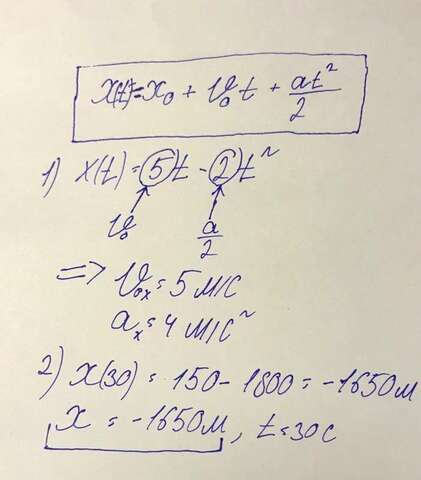 x(t) = x₀ + v₀t + at²/2
1) x(t) = 5t - 2t²
v₀ a/2
=> v₀ₓ = 5 м/с
aₓ = 4 м/с²
2) x(30) = 150 - 1800 = -1650 м
x = -1650 м, t = 30 с